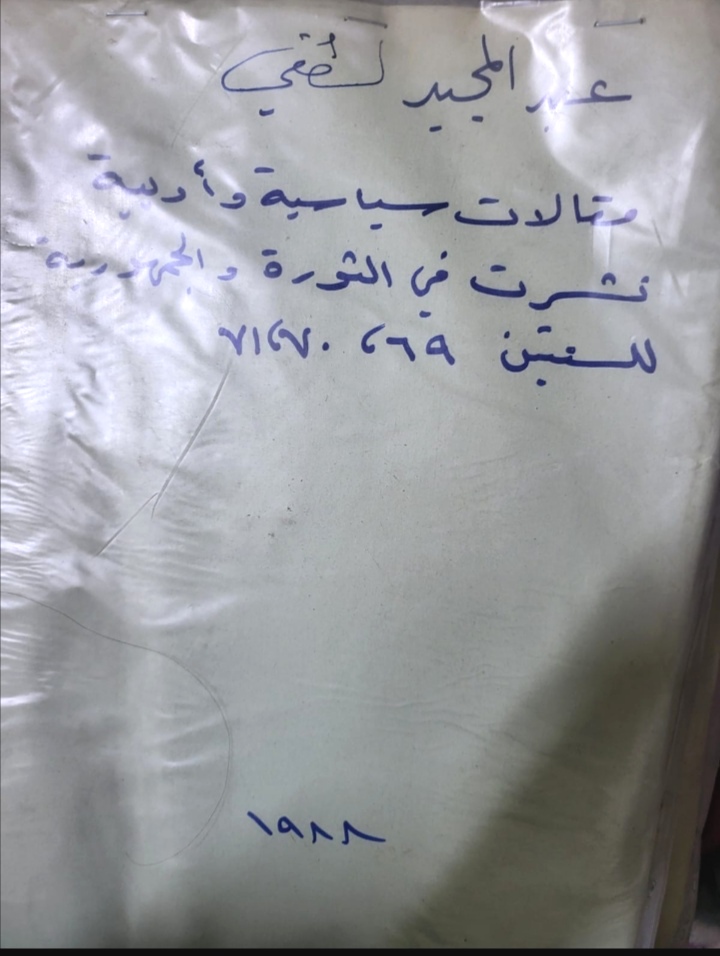 عبد المجيد لطفي
مقالات سياسية وأدبية
نشرت في الثورة والجمهورية
للسنتين ٦٩، ٧٠، ٧١
١٩٨٨